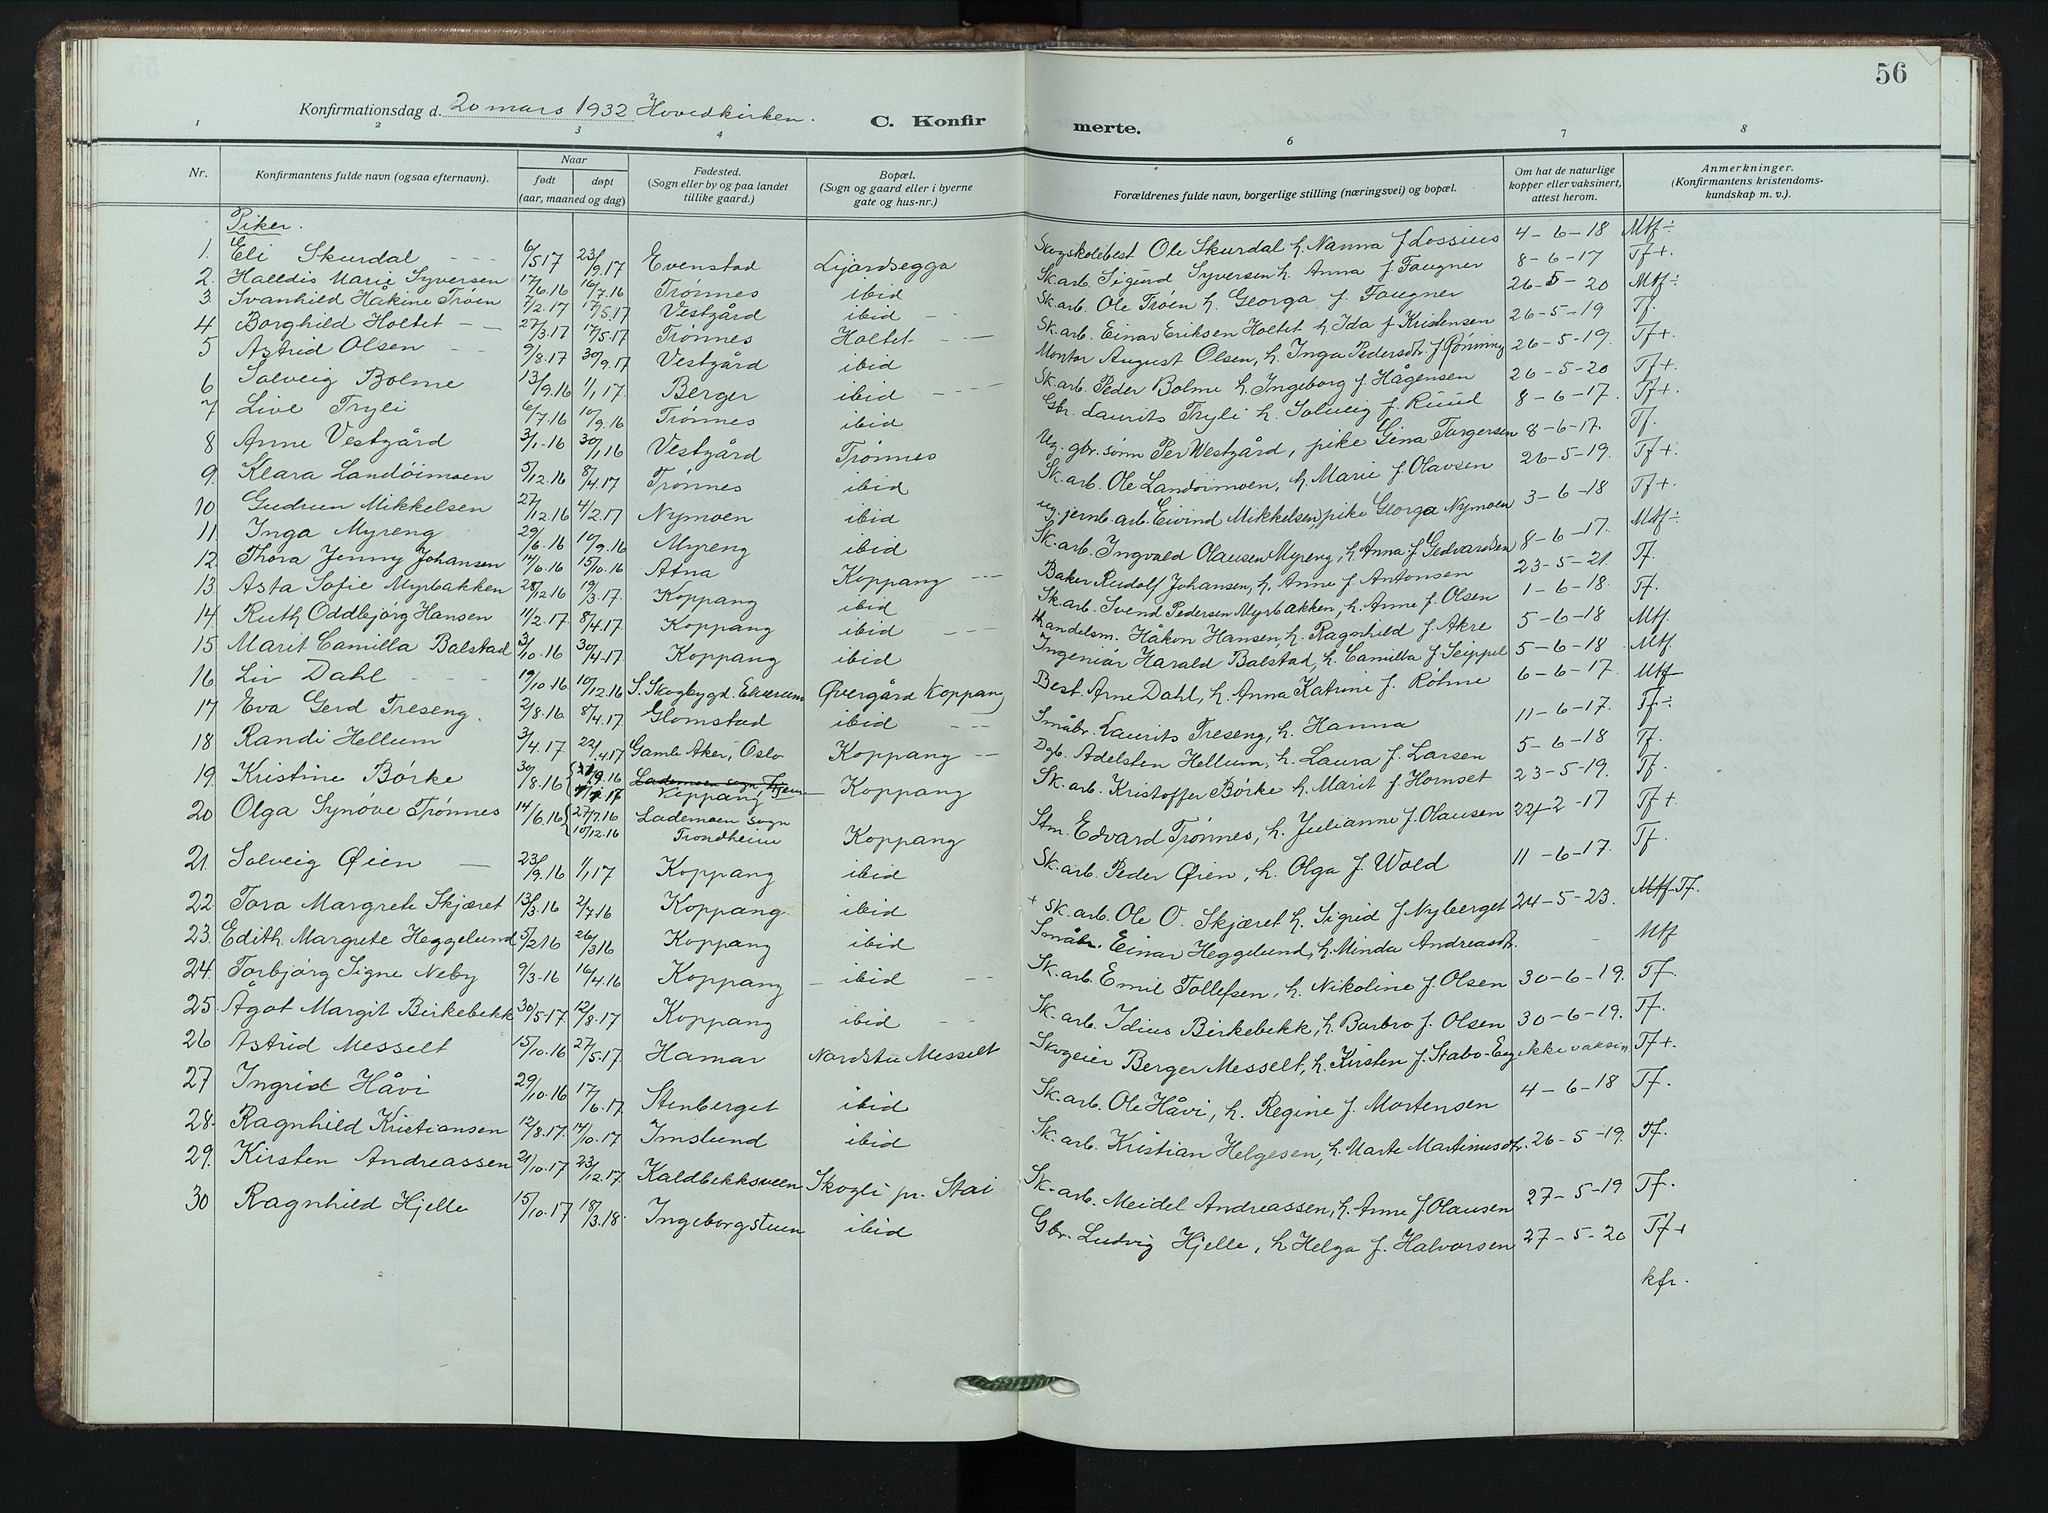 56
Konfirmationsdag d. 20 mars 1932 Hovedkirken. C. Konfirmerte.
1 2 3 4 5 6 7 8
Nr. Konfirmantens fulde navn (ogsaa efternavn). Naar født døpt (aar, maaned og dag) Fødested. (Sogn eller by og paa landet tillike gaard.) Bopæl. (Sogn og gaard eller i byerne gate og hus-nr.) Forældrenes fulde navn, borgerlige stilling (næringsvei) og bopæl. Om hat de naturlige kopper eller vaksinert, attest herom. Anmerkninger. (Konfirmantens kristendomskundskap m. v.).
Piker.
1. Eli Skurdal 6/5 17 23/9.17 Evenstad Ljardsegga Skogskolebest Ole Skurdal h. Nanna f Lossius 4-6-18 Mtf÷
2. Halldis Marie Syversen 17/6.16 16/7.16 Trønnes ibid Sk.arb. Sigurd Syversen h. Anna f Faugner 8-6-17 Tf+
3. Svanhild Håkine Trøen 7/2.17 17/5.17 Vestgård ibid Sk.arb. Ole Trøen h Georga f. Faugner 26-5-20 Mtf÷
4 Borghild Holtet 27/3.17 17/5.17 Trønnes Holtet Sk.arb. Einar Eriksen Holtet h Ida f Kristensen 26-5-19 Tf.
5 Astrid Olsen 9/8.17 30/9.17 Vestgård ibid Montør August Olsen, h. Inga Pedersdtr. f Rønning 26-5-19. Tf+
6 Solveig Bolme 13/9.16 1/1.17 Berger ibid Sk.arb. Peder Bolme h. Ingeborg f Hågensen 26-5-20 Tf+.
7 Live Tryli 6/7.16 10/9.16 Trønnes ibid Gbr. Laurits Tryli h. Solveig f. Ruud 8-6-17. Tf+.
8 Anne Vestgård 3/1-16 30/1.16 Vestgård Trønnes Ug. gbr. sønn Per Westgård, pike Gina Torgersen 8-6-17. Tf.
9. Klara Landøimoen 5/12.16 8/4.17 Trønnes ibid Sk.arb. Ole Landøimoen, h. Marie f. Olavsen 26-5-19. Tf+.
10 Gudrun Mikkelsen 27/12.16 4/2.17 Nymoen ibid ug. jernb. arb. Eivind Mikkelsen, pike Georga Nymoen 3-6-18 Tf+
11. Inga Myreng 29/6.16 10/9.16 Myreng ibid Sk.arb. Ingvald Olausen Myreng, h. Anna f Gedvardsen 8-6-17. Mtf÷
12. Thora Jenny Johansen 14/6.16 15/10.16 Atna Koppang Baker Rudolf Johansen, h. Anne f. Antonsen 23-5-21. Tf.
13. Asta Sofie Myrbakken 28/12.16 19/3.17. Koppang ibid Sk.arb. Svend Pedersen Myrbakken, h. Anne f. Olsen 1-6-18. Tf.
14. Ruth Oddbjørg Hansen 11/2.17 8/4.17. Koppang ibid Handelsm. Håkon Hansen, h. Ragnhild f. Akre 5-6-18 Mtf.
15 Marit Camilla Balstad 3/10.16 30/4.17. Koppang ibid Ingeniør Harald Balstad, h. Camilla f. Seippel 5-6-18 Mtf.
16 Liv Dahl 19/10.16 10/12.16 S. Skogbygd. Elverum Øvergård Koppang Best. Arne Dahl, h. Anna Katrine f. Røhme 6-6-17. Mtf
17. Eva Gerd Treseng. 2/8.16 8/4.17 Glomstad ibid Småbr. Laurits Treseng, h. Hanna 11-6-17. Tf÷
18 Randi Hellum 3/4.17 22/4.17 Gamle Aker, Oslo Koppang Dgb. Adelsten Hellum, h. Laura f. Larsen 5-6-18 Tf.
19. Kristine Børke 30/8.16 Lademoen sogn Koppang Koppang Sk.arb. Kristoffer Børke h. Marit f Hornset 23-5-19. Tf.
20 Olga Synøve Trønnes 14/6.16 27/7.16 10/12.16 Lademoen sogn Trondheim Koppang Stm. Edvard Trønnes, h. Julianne f. Olausen 22-2-17 Tf+
21. Solveig Øien 23/9.16 1/1.17 Koppang ibid Sk.arb. Peder Øien, h. Olga f. Wold 11-6-17. Tf.
22. Tora Margrete Skjæret 13/3.16 2/7.16 Koppang ibid + Sk.arb. Ole O. Skjæret h. Sigrid f Nyberget 24-5-23. Mtf Tf.
23. Edith. Margrete Heggelund 5/2 16 26/3 16 Koppang ibid Småbr. Einar Heggelund, h. Minda Andreasdt. - Mtf
24. Torbjørg Signe Neby 9/3-16 16/4.16 Koppang ibid Sk.arb. Emil Tollefsen, h. Nikoline f. Olsen 30-6-19. Tf.
25. Ågot Margit Birkebekk 30/5.17 12/8.17 Koppang ibid Sk.arb. Idius Birkebekk, h. Barbro f. Olsen 30-6-19. Tf.
26 Astrid Messelt 15/10.16 27/5.17 Hamar Nordstu Messelt Skogeier Berger Messelt, h. Kirsten f. Stabo-Eeg ikke vaksin Tf+.
27 Ingrid Håvi 29/10.16 17/6.17 Stenberget ibid Sk.arb. Ole Håvi, h. Regine f. Mortensen 4-6-18 Tf.
28. Ragnhild Kristiansen 12/8.17. 14/10.17 Imslund ibid Sk.arb. Kristian Helgesen, h. Marte Martinusdtr. 26-5-19. Tf.
29. Kirsten Andreassen 21/10.17 23/12.17 Kaldbekksveen Skogli pr. Stai Sk.arb. Meidel Andreassen, h. Anne f. Olausen 27-5-19 Tf.
30 Ragnhild Hjelle 15/10.17 18/3.18. Ingeborgstuen ibid Gbr. Ludvig Hjelle, h Helga f. Halvorsen 27-5-20 Tf+
kfr.